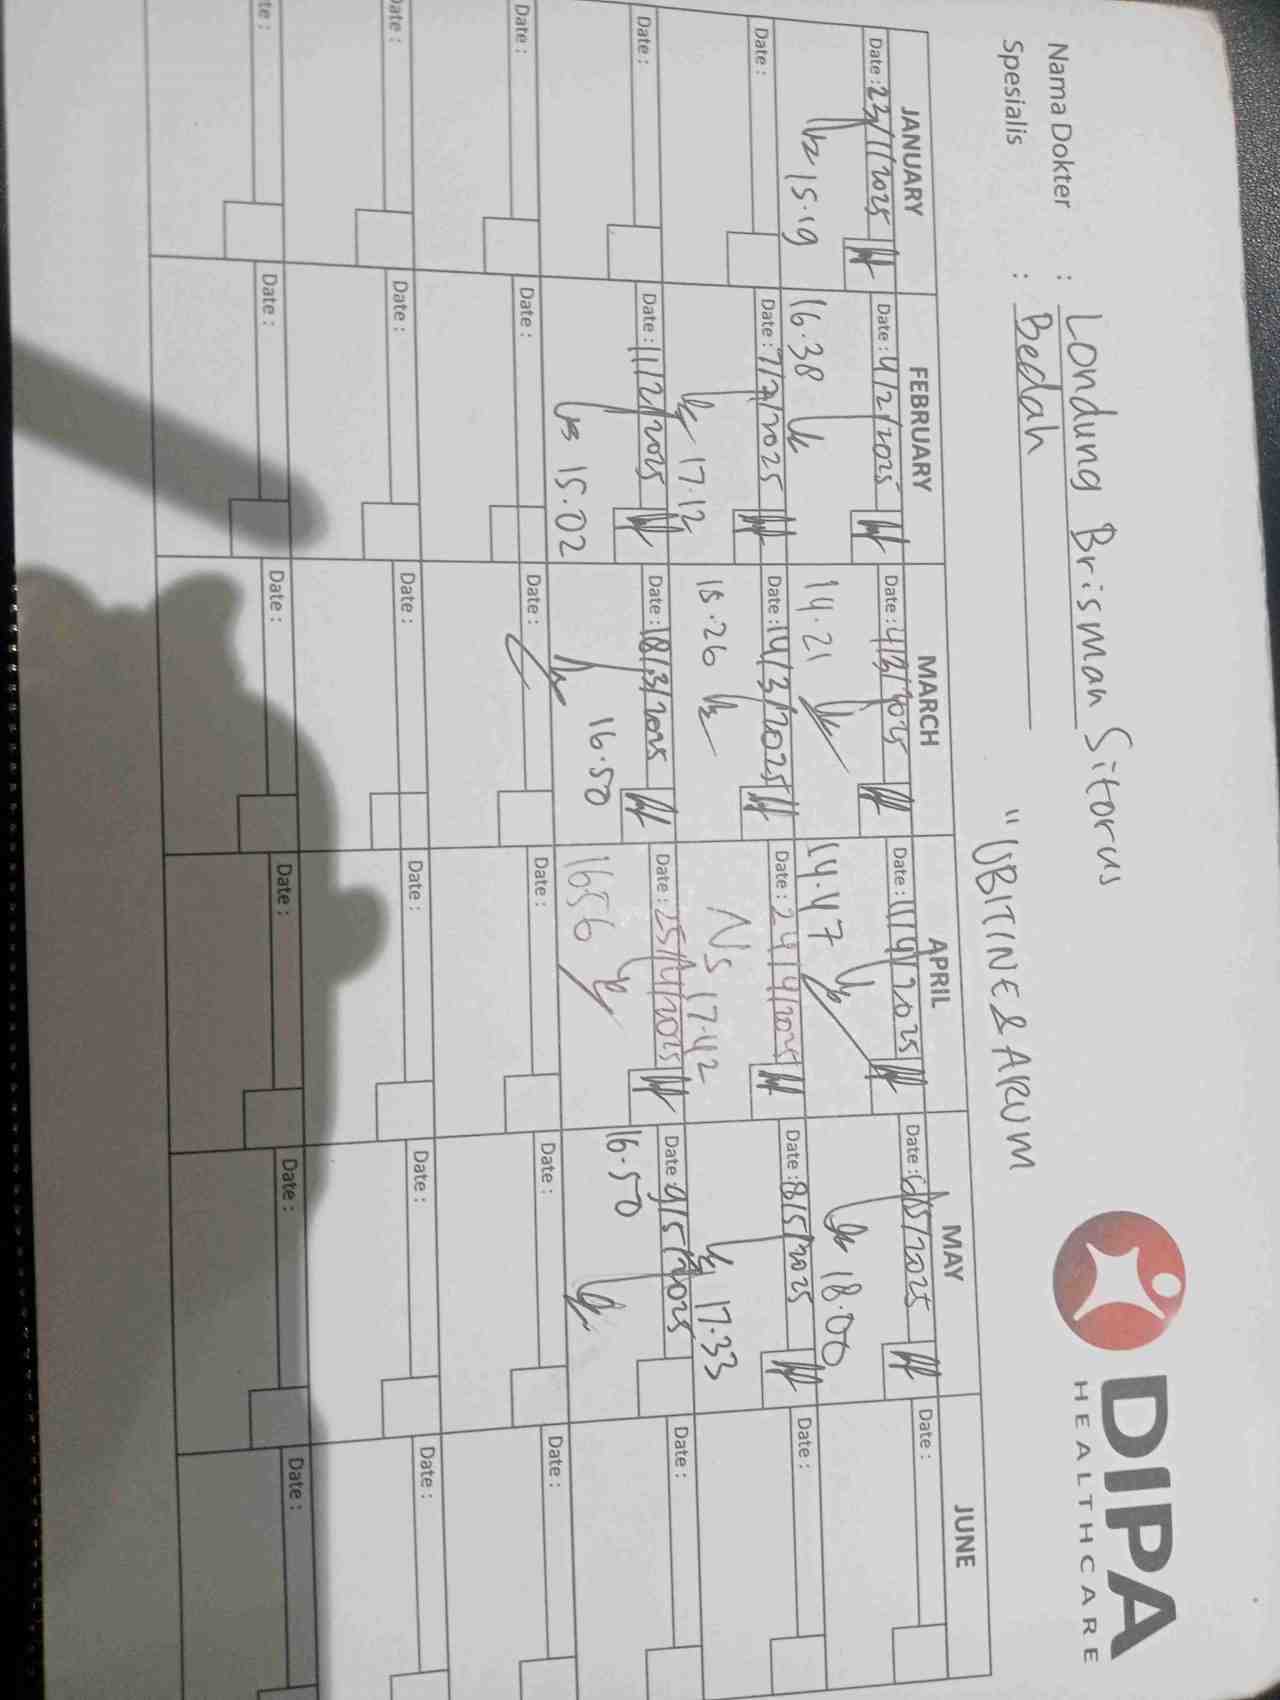 DIPA
HEALTHCARE
Nama Dokter : Londung Brisman Sitorus
Spesialis : Bedah
" UBITINE & ARUM
JANUARY FEBRUARY MARCH APRIL MAY JUNE
Date : 23/1/2025 Date : 4/2/2025 Date : 4/3/2025 Date : 11/4/2025 Date : 6/5/2025 Date :
15.19 16.38 14.21 14.47 18.00
Date : Date : 7/2/2025 Date : 14/3/2025 Date : 24/4/2025 Date : 8/5/2025 Date :
17.12 18.26 Ns 17.42 17.33
Date : Date : 11/2/2025 Date : 18/3/2025 Date : 25/4/2025 Date : 9/5/2025 Date :
15.02 16.50 16.56 16.50
Date : Date : Date : Date : Date : Date :
Date : Date : Date : Date : Date : Date :
te : Date : Date : Date : Date : Date :